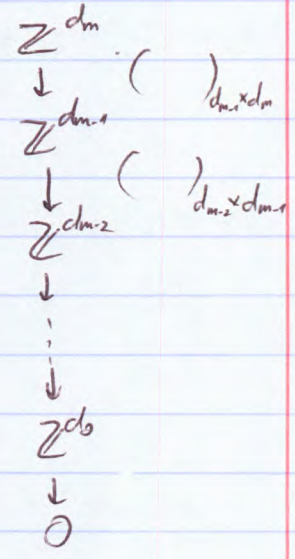 ℤ^{d_m}
↓ ( )_{d_{m-1}×d_m}
ℤ^{d_{m-1}}
↓ ( )_{d_{m-2}×d_{m-1}}
ℤ^{d_{m-2}}
↓
⋮
↓
ℤ^{d_0}
↓
0